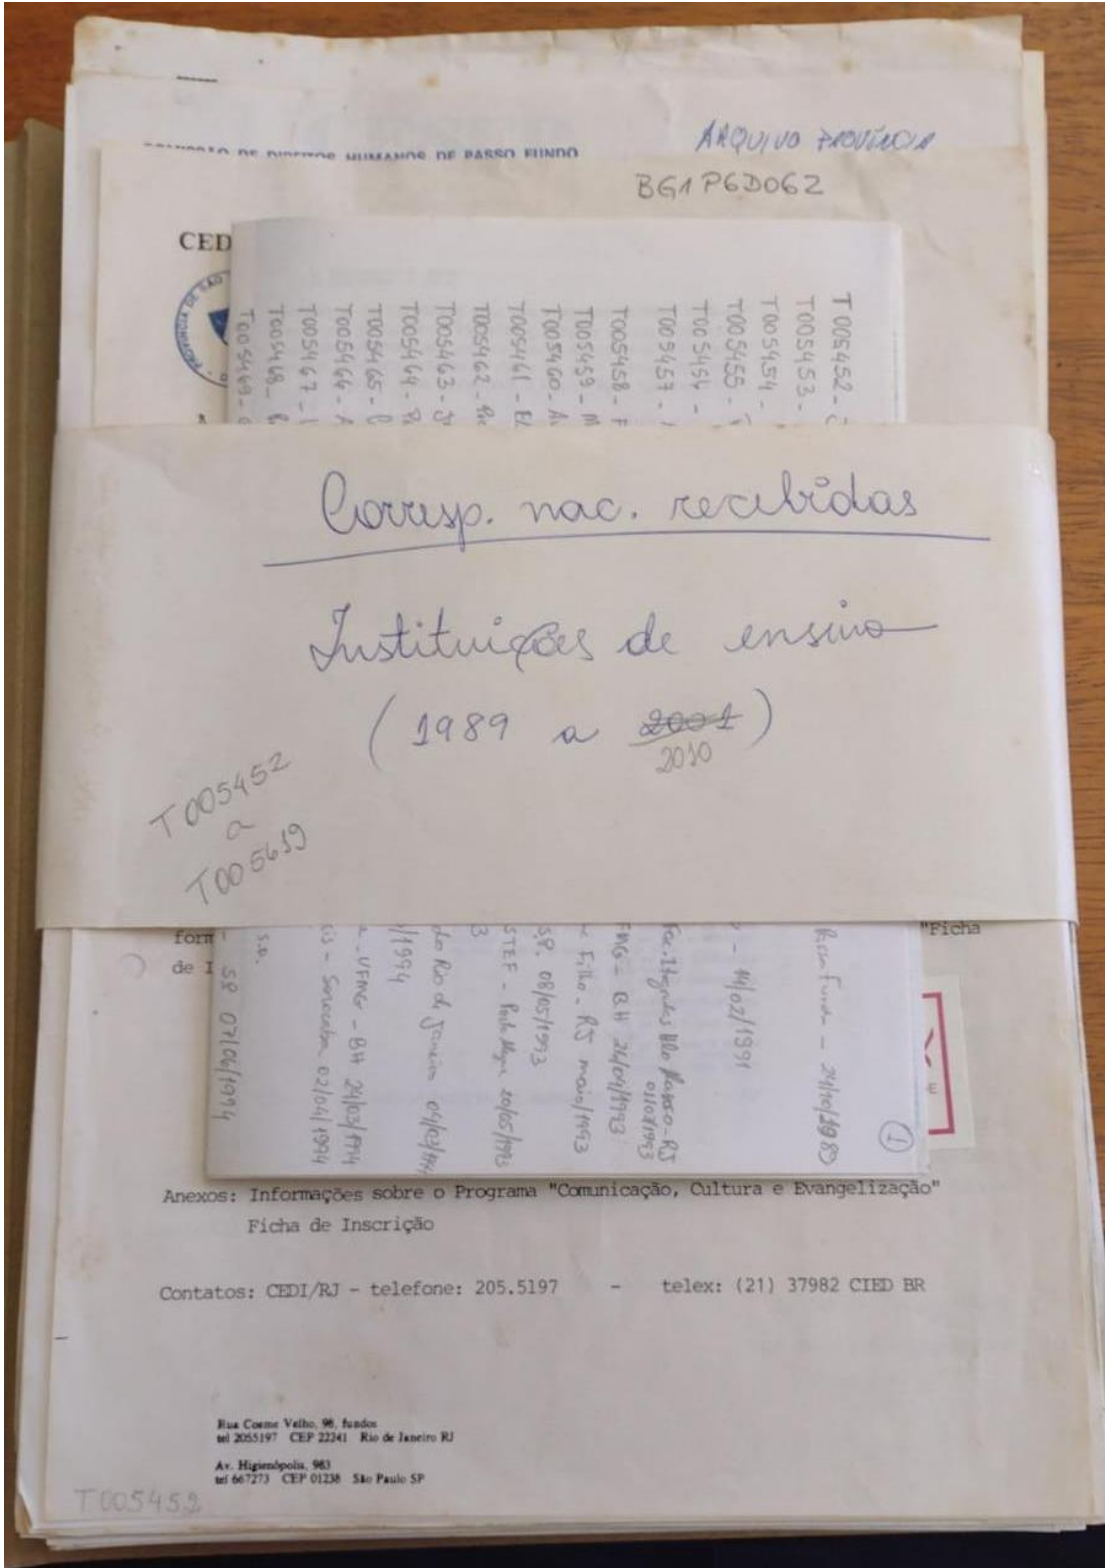 ARQUIVO PROVÍNCIA
DE DIREITOS HUMANOS DE PASSO FUNDO
BG1P6D062
CED
T005452 -
T005453 -
T005454 -
T005455 -
T005456 -
T005457 -
T005458 - F
T005459 - M
T005460 - A
T005461 - E
T005462 - Re
T005463 - J
T005464 - P
T005465 -
T005466 - A
T005467 -
T005468 -
T005469 -
Corresp. nac. recebidas
Instituições de ensino
(1989 a 2001)
2010
T005452
a
T005619
form
"Ficha
de I
Passo Fundo - 24/10/1989
- 14/02/1991
Fac. Integradas Hélio Alonso - RJ
01/03/1993
FMG - BH 26/04/1993
Filho - RJ maio/1993
SP. 08/05/1993
STEF - Porto Alegre 20/05/1993
3
do Rio de Janeiro
/1994
UFMG - BH 24/03/1994
is - Sorocaba 02/04/1994
SP 07/06/1994
1
Anexos: Informações sobre o Programa "Comunicação, Cultura e Evangelização"
Ficha de Inscrição
Contatos: CEDI/RJ - telefone: 205.5197 - telex: (21) 37982 CIED BR
Rua Cosme Velho, 98, fundos
tel 2055197 CEP 22241 Rio de Janeiro RJ
Av. Higienópolis, 983
tel 667273 CEP 01238 São Paulo SP
T005452